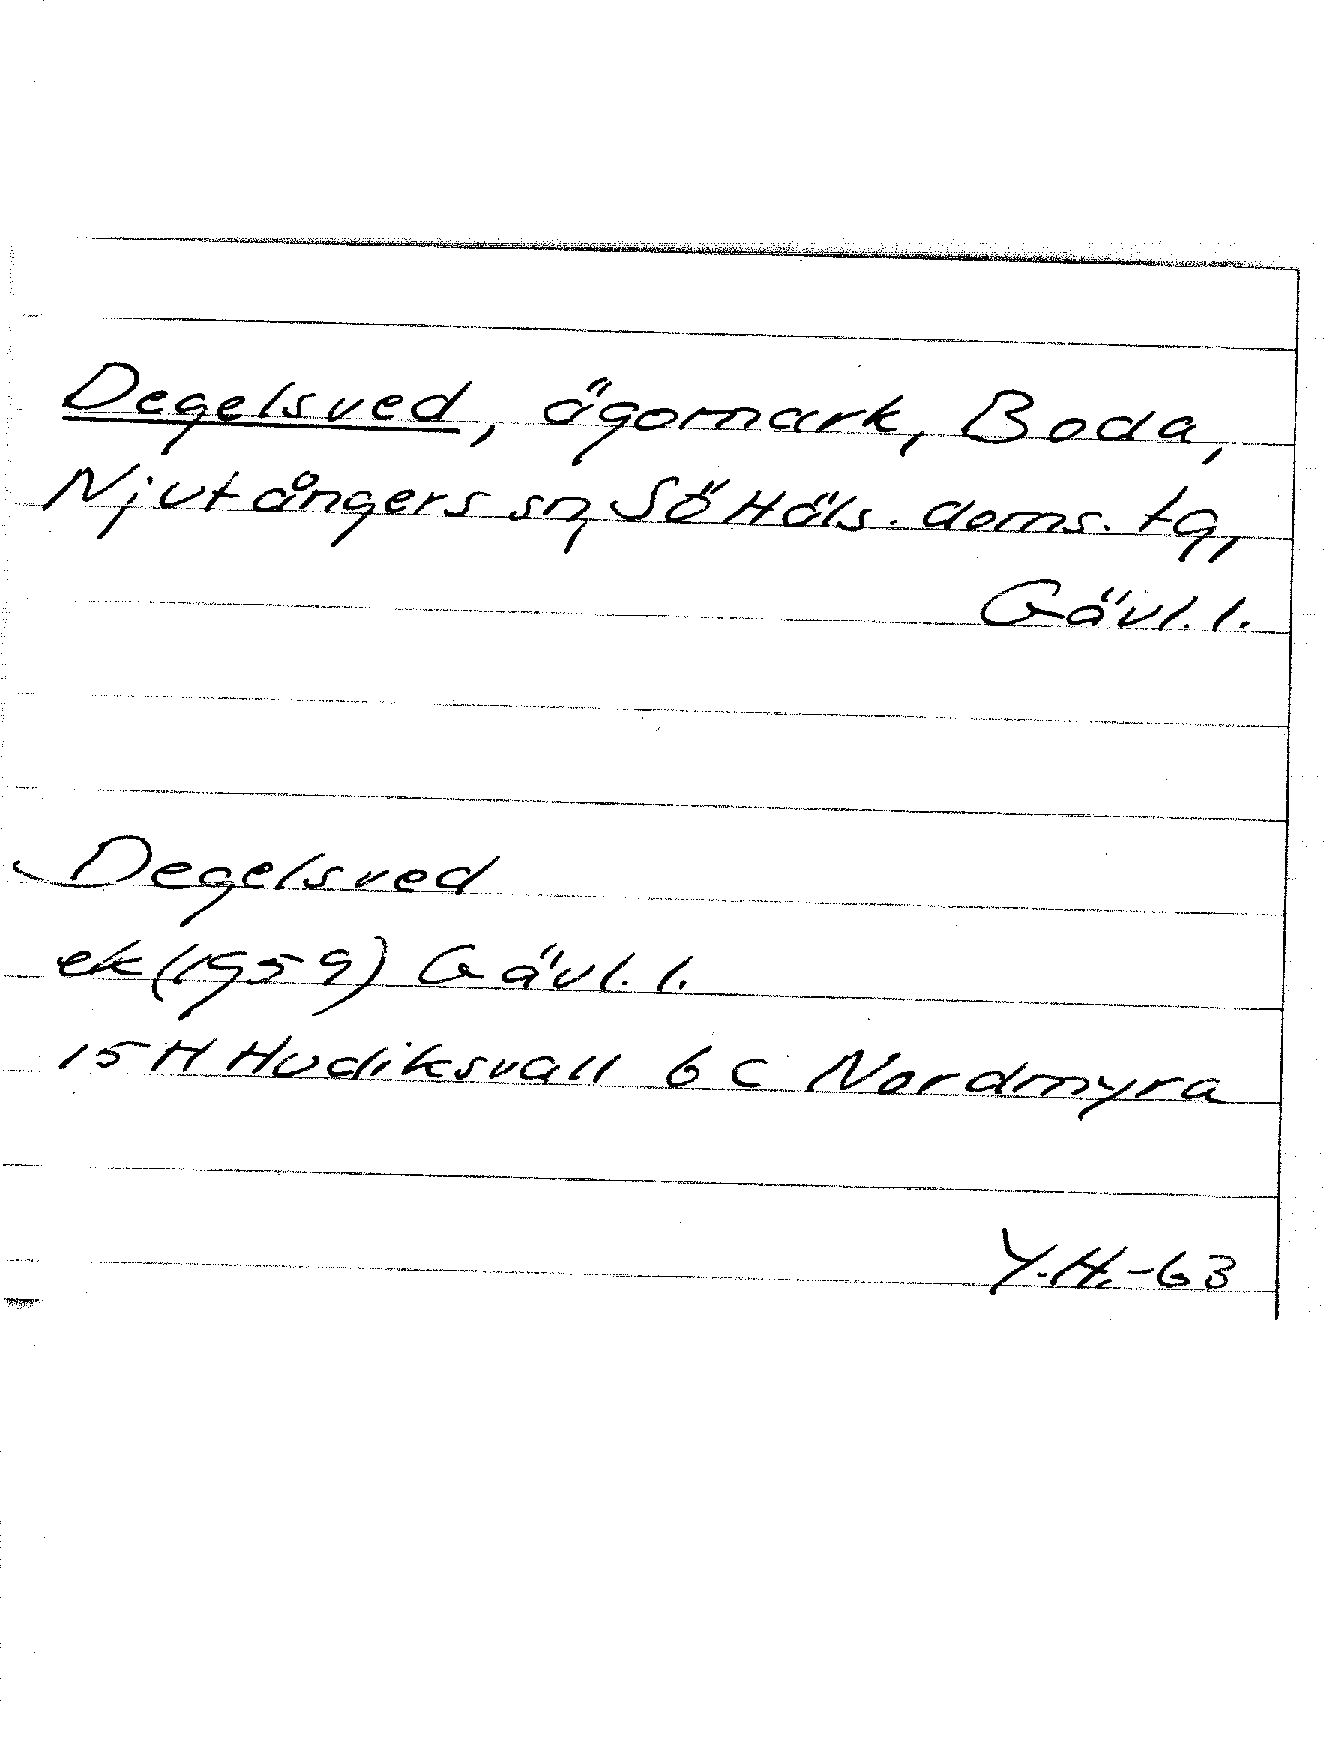 Degelsved, ägomark, Boda,
Njutångers sn, Sö Häls. doms. tg,
Gävl. l.
Degelsved
ek (1959) Gävl. l.
15 H Hudiksvall 6 c Nordmyra
Y.H.-63